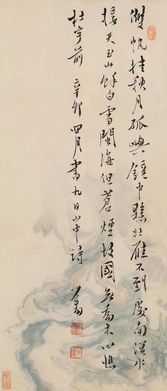 雙帆挂秋月孤嶼鏡中縣北雁不到處南溟水
接天玉山餘白雪閩海但蒼煙故國無喬木心悲
杜宇前 辛卯四月書九日山中詩 心畬